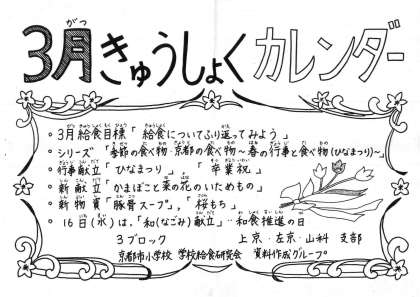 3月きゅうしょくカレンダー
◦ 3月給食目標「給食についてふり返ってみよう」
◦ シリーズ「季節の食べ物・京都の食べ物～春の行事と食べ物(ひなまつり)～」
◦ 行事献立「ひなまつり」,「卒業祝」
◦ 新献立「かまぼこと菜の花のいためもの」
◦ 新物資「豚骨スープ」,「桜もち」
◦ 16日(水)は,「和(なごみ)献立」…和食推進の日
3ブロック 上京・左京・山科 支部
京都市小学校 学校給食研究会 資料作成グループ